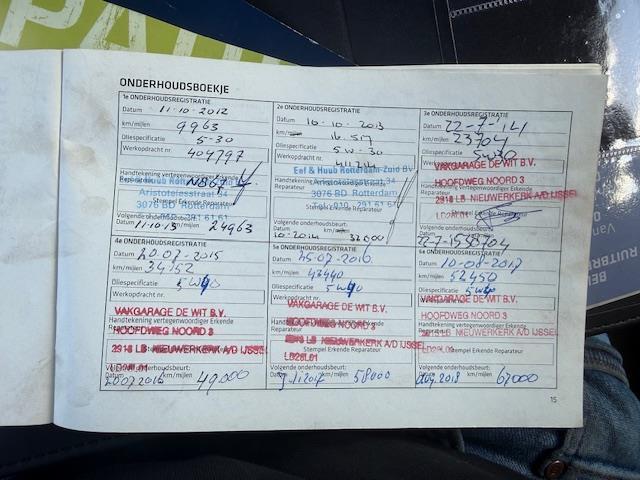 ONDERHOUDSBOEKJE
1e ONDERHOUDSREGISTRATIE
Datum 11-10-2012
km/mijlen 9963
Oliespecificatie 5-30
Werkopdracht nr. 404797
Handtekening vertegenwoordiger Erkende
Eef & Huub Rotterdam-Zuid BV
Aristotelesstraat 34
3076 BD Rotterdam
Stempel Erkende Reparateur
Tel. 010 - 291 61 61
Volgende onderhoudsbeurt:
Datum 11-10-13 km/mijlen 24963
2e ONDERHOUDSREGISTRATIE
Datum 16-10-2013
km/mijlen 16.517
Oliespecificatie 5W-30
Werkopdracht nr.
Eef & Huub Rotterdam-Zuid BV
Handtekening vertegenwoordiger Erkende
Reparateur Aristotelesstraat 34
3076 BD Rotterdam
Stempel Erkende Reparateur
Tel. 010 - 291 61 61
Volgende onderhoudsbeurt:
Datum 10-2014 km/mijlen 32000
3e ONDERHOUDSREGISTRATIE
Datum 22-7-14
km/mijlen 23704
Oliespecificatie 5W30
Werkopdracht nr.
VAKGARAGE DE WIT B.V.
Handtekening vertegenwoordiger Erkende
HOOFDWEG NOORD 3
2913 LB NIEUWERKERK A/D IJSSEL
Stempel Erkende Reparateur
Volgende onderhoudsbeurt:
Datum 22-7-15 km/mijlen 38704
4e ONDERHOUDSREGISTRATIE
Datum 20-07-2015
km/mijlen 34152
Oliespecificatie 5W40
Werkopdracht nr.
VAKGARAGE DE WIT B.V.
Handtekening vertegenwoordiger Erkende
HOOFDWEG NOORD 3
Stempel Erkende Reparateur
2913 LB NIEUWERKERK A/D IJSSEL
LD28L01
Volgende onderhoudsbeurt:
Datum 20-07-2016 km/mijlen 49000
5e ONDERHOUDSREGISTRATIE
Datum 25-07-2016
km/mijlen 43440
Oliespecificatie 5W40
Werkopdracht nr.
VAKGARAGE DE WIT B.V.
Handtekening vertegenwoordiger Erkende
HOOFDWEG NOORD 3
Stempel Erkende Reparateur
2913 LB NIEUWERKERK A/D IJSSEL
LD28L01
Volgende onderhoudsbeurt:
Datum km/mijlen 58000
6e ONDERHOUDSREGISTRATIE
Datum
km/mijlen 52450
Oliespecificatie 5W40
Werkopdracht nr.
VAKGARAGE DE WIT B.V.
Handtekening vertegenwoordiger Erkende
HOOFDWEG NOORD 3
2913 LB NIEUWERKERK A/D IJSSEL
Stempel Erkende Reparateur
LD28L01
Volgende onderhoudsbeurt:
Datum km/mijlen 67000
15